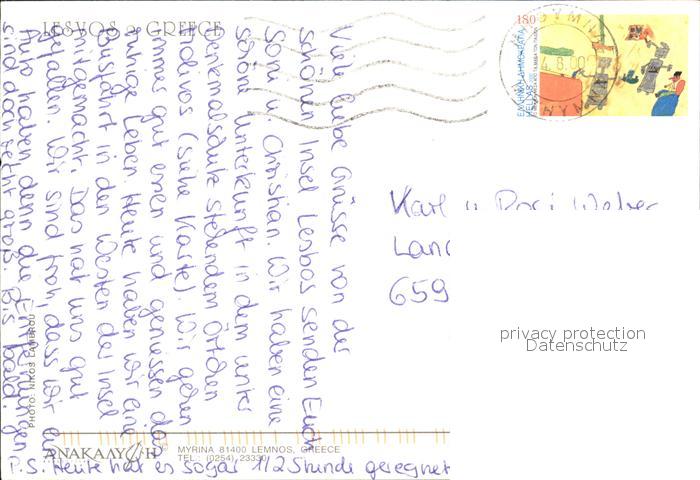 LESVOS - GREECE
Viele liebe Grüsse von der
schönen Insel Lesbos senden Euch
Soni u. Christian. Wir haben eine
schöne Unterkunft in dem unter
Denkmalschutz stehendem Örtchen
Molivos (siehe Karte). Wir gehen
immer gut essen und geniessen das
ruhige Leben. Heute haben wir eine
Busfahrt in den Westen der Insel
mitgemacht. Das hat uns gut
gefallen. Wir sind froh, dass wir ein
Auto haben, denn die Entfernungen
sind doch recht groß. Bis bald!
P.S. Heute hat es sogar 1/2 Stunde geregnet
180
ΕΛΛΗΝΙΚΗ ΔΗΜΟΚΡΑΤΙΑ
HELLAS
4.8.00
Karl u. Dori
659
privacy protection
Datenschutz
PHOTO: NIKOS LAMBROU
ΑΝΑΚΑΛΥΨΗ
MYRINA 81400 LEMNOS, GREECE
TEL.: (0254) 23330